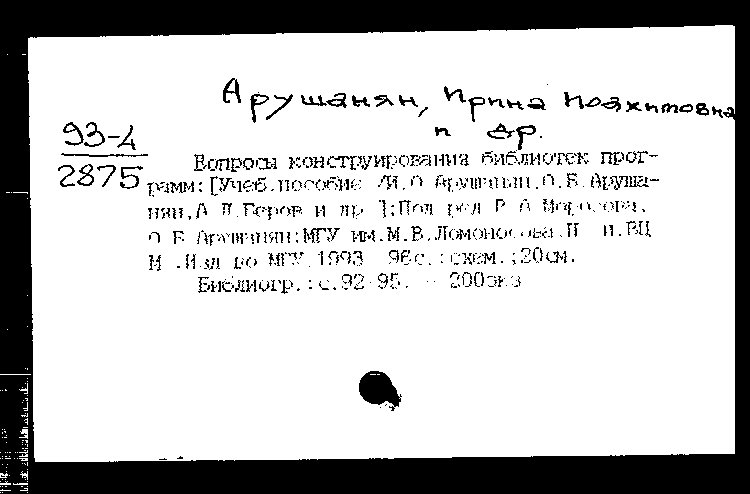 Арушанян, Ирина Иоахимовна
и др.
93-4
2875
Вопросы конструирования библиотек прог-
рамм:[Учеб.пособие /И.О Арушанян,О.Б.Аруша-
нян,А Д.Геров и др ];Под ред В А Морозова,
О Б Арушанян;МГУ им.М.В.Ломоносова.Н и.ВЦ
М .:Изд во МГУ,1993 96с.:схем.;20см.
Библиогр.:с.92-95. - 200экз